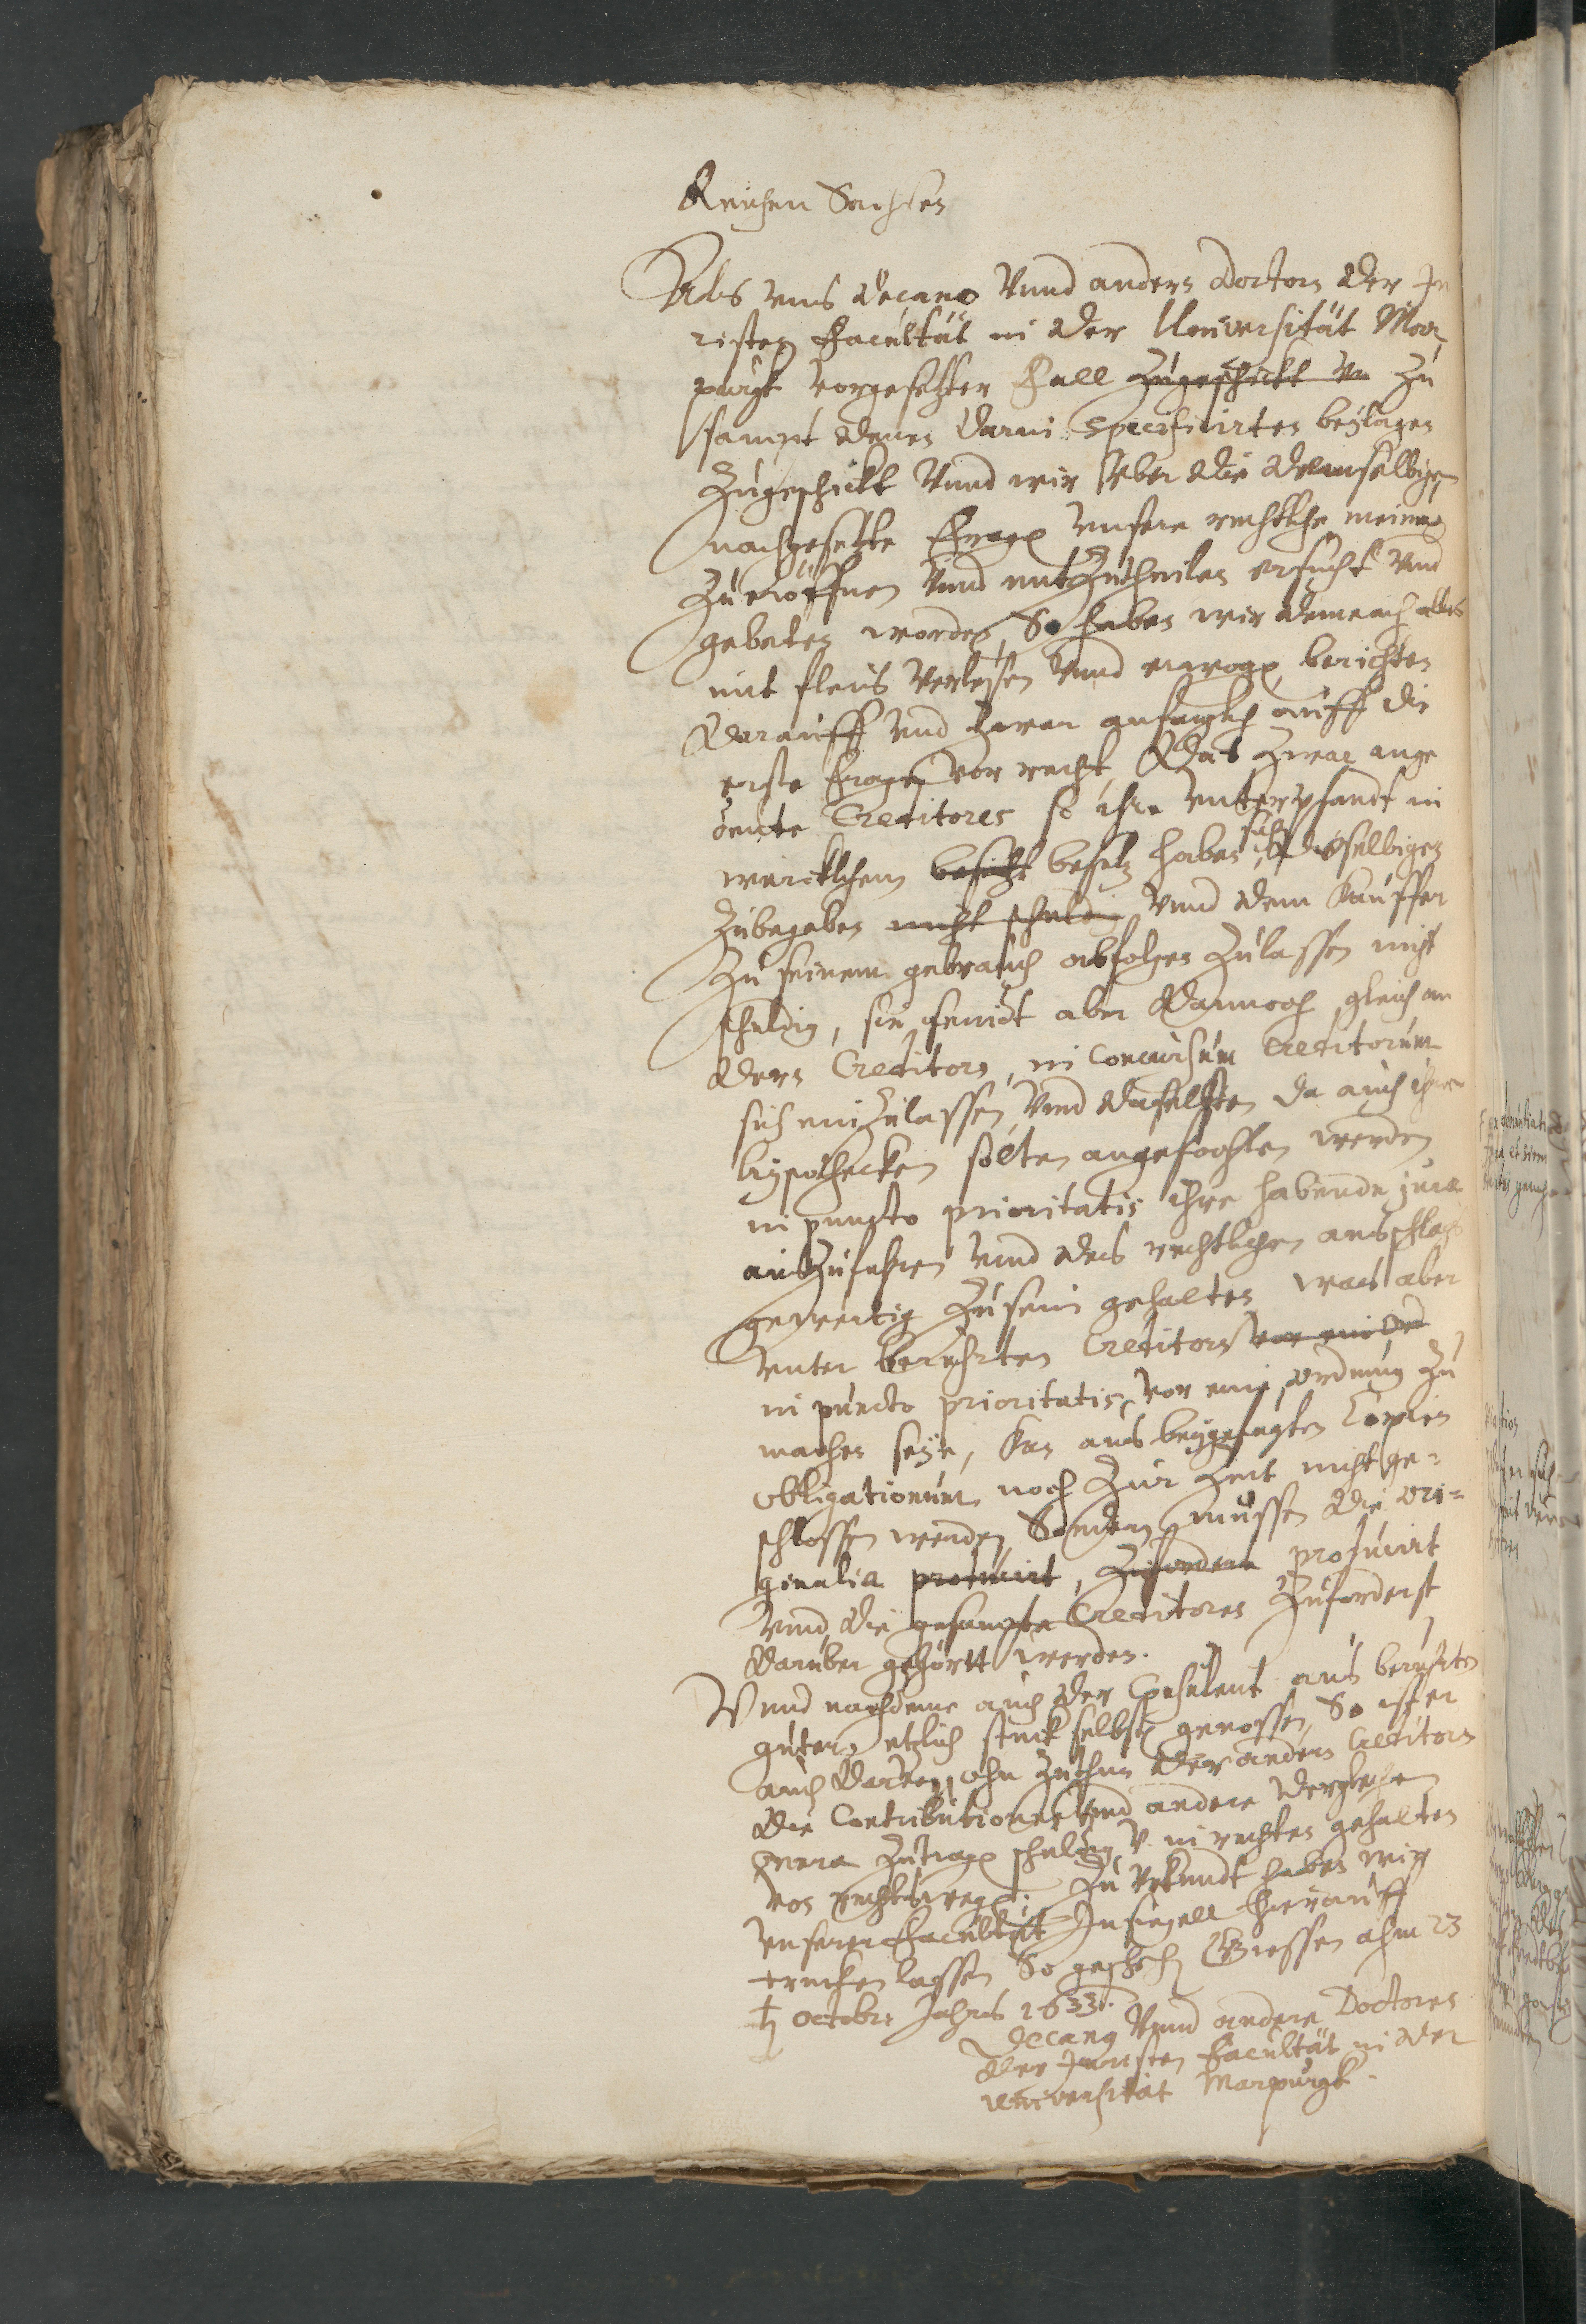 Reichen Sachsen
Als uns Decano Vnnd andern Doctorn der Ju
risten Facultät in der Universität Mar
purgk vorgesetzter Fall zugeschickt Vn zu
sampt denen darin specificirten beylagen
Zugeschickt Vnnd wir vber die demselbigen
nachgesetzte Fragen vnsere rechtliche meinung
Zu eröffnen Vnnd mitzutheilen ersucht Vnnd
gebeten worden, So haben wir demnach alles
mit fleiß Verlesen Vnnd erwogen, berichten
darauff Vnd zwar anfenglich auff die
erste Fragen vor recht, Das zwar ange
deute Creditores so ihre Vnterpfandt in
wircklichem besitzt besitz haben, sich desselbigen
Zubegeben nicht schuldig Vnnd dem Kauffer
Zu seinem gebrauch abfolgen Zulassen nicht
schuldig, sie seindt aber dannoch, gleich an
dern Creditorn, in Concursum Creditorum
sich einzulassen, Vnnd daselbsten da auch ihre
hypothecken solten angefochten werden
in puncto prioritatis ihre habende jura
auszufuhren Vnnd des rechtlichen ausschlags
gewertig Zu sein gehalten, was aber
Vnter berurten Creditorn vor ein Ord
in puncto prioritatis, vor eine ordnung zu
machen seye, kan aus beygefugten Copien
obligationum noch zur Zeit nicht ge=
schlossen werden, Sondern müssen die ori=
ginalia producirt, zuforderst producirt
Vnnd die gesampte Creditores Zuforderst
daruber gehörtt werden.
Vnnd nachdeme auch der Consulent aus berurten
gutern etzlich stuck selbsten genossen, So ist er
auch darvon, ohn Zuthun der andern Creditorn
die Contributiones Vnd andere dergleichen
onera Zutragen schuldig V. in rechten gehalten
von rechtswegen: Zu Vrkundt haben wir
Vnserer Facultät Insiegell hierauff
trucken lassen So geschehen Giessen ahm 23
t octobr: Jahrs 1633.
Decang Vnnd andere Doctores
der Juristen Facultät in der
universität Marpurgk.